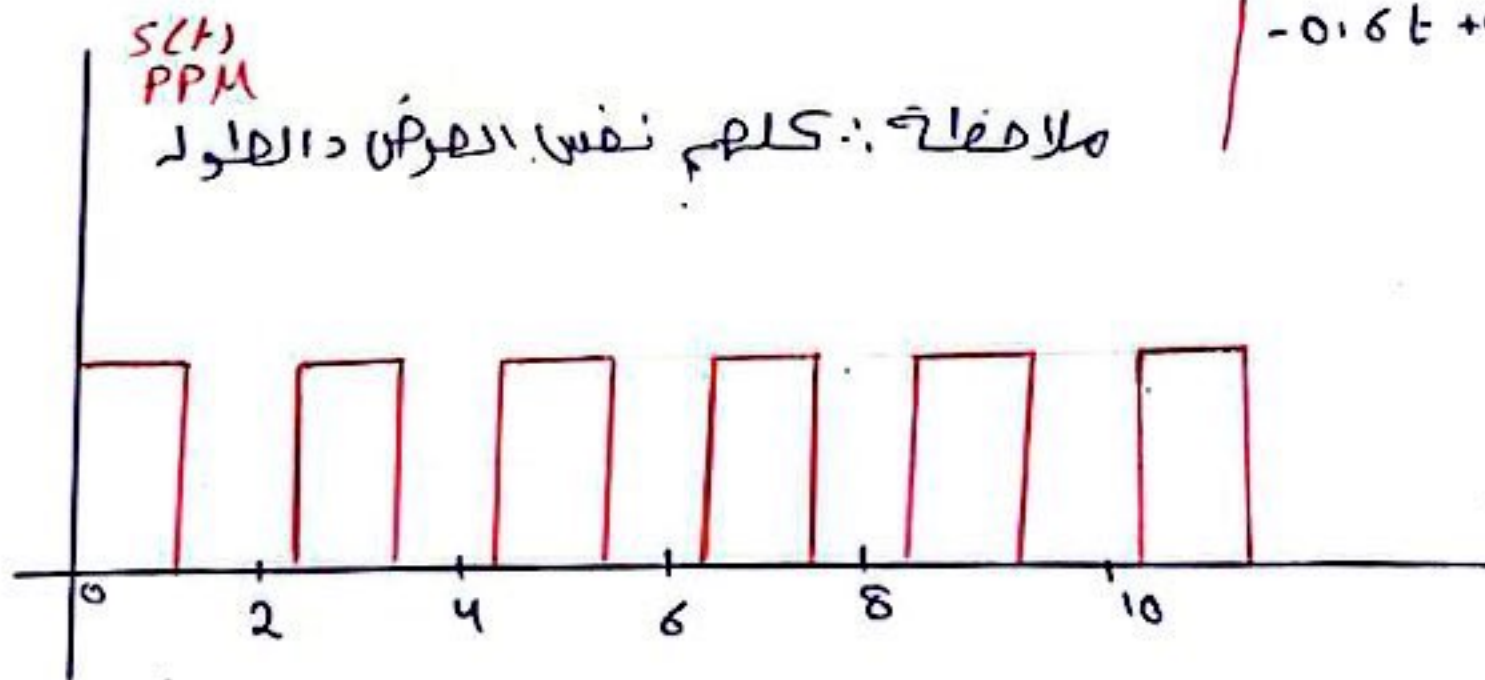 S(t)
PPM
-0.6t +
ملاحظة: كلهم نفس العرض والطول
0 2 4 6 8 10